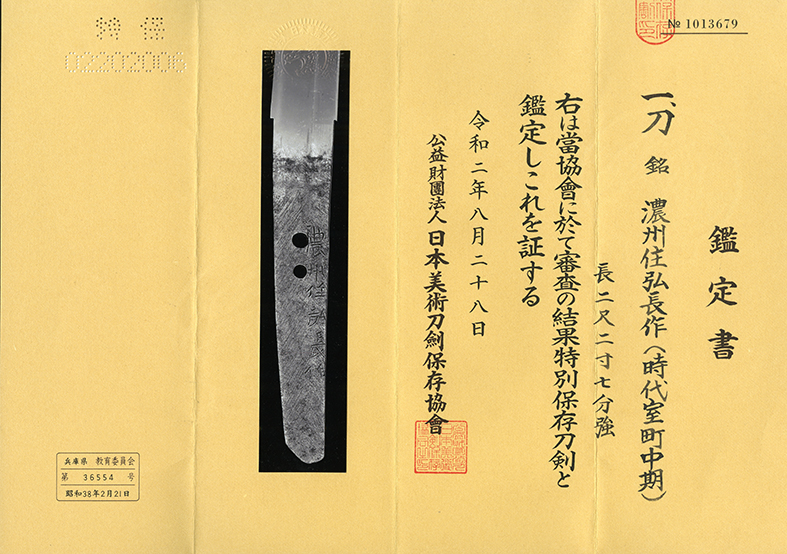 № 1013679
鑑定書
一、刀 銘 濃州住弘長作(時代室町中期)
長二尺二寸七分強
右は當協會に於て審査の結果特別保存刀剣と
鑑定しこれを証する
令和二年八月二十八日
公益財團法人 日本美術刀剣保存協會
濃州住弘長作
特保
02202006
兵庫県 教育委員会
第 36554 号
昭和38年2月21日